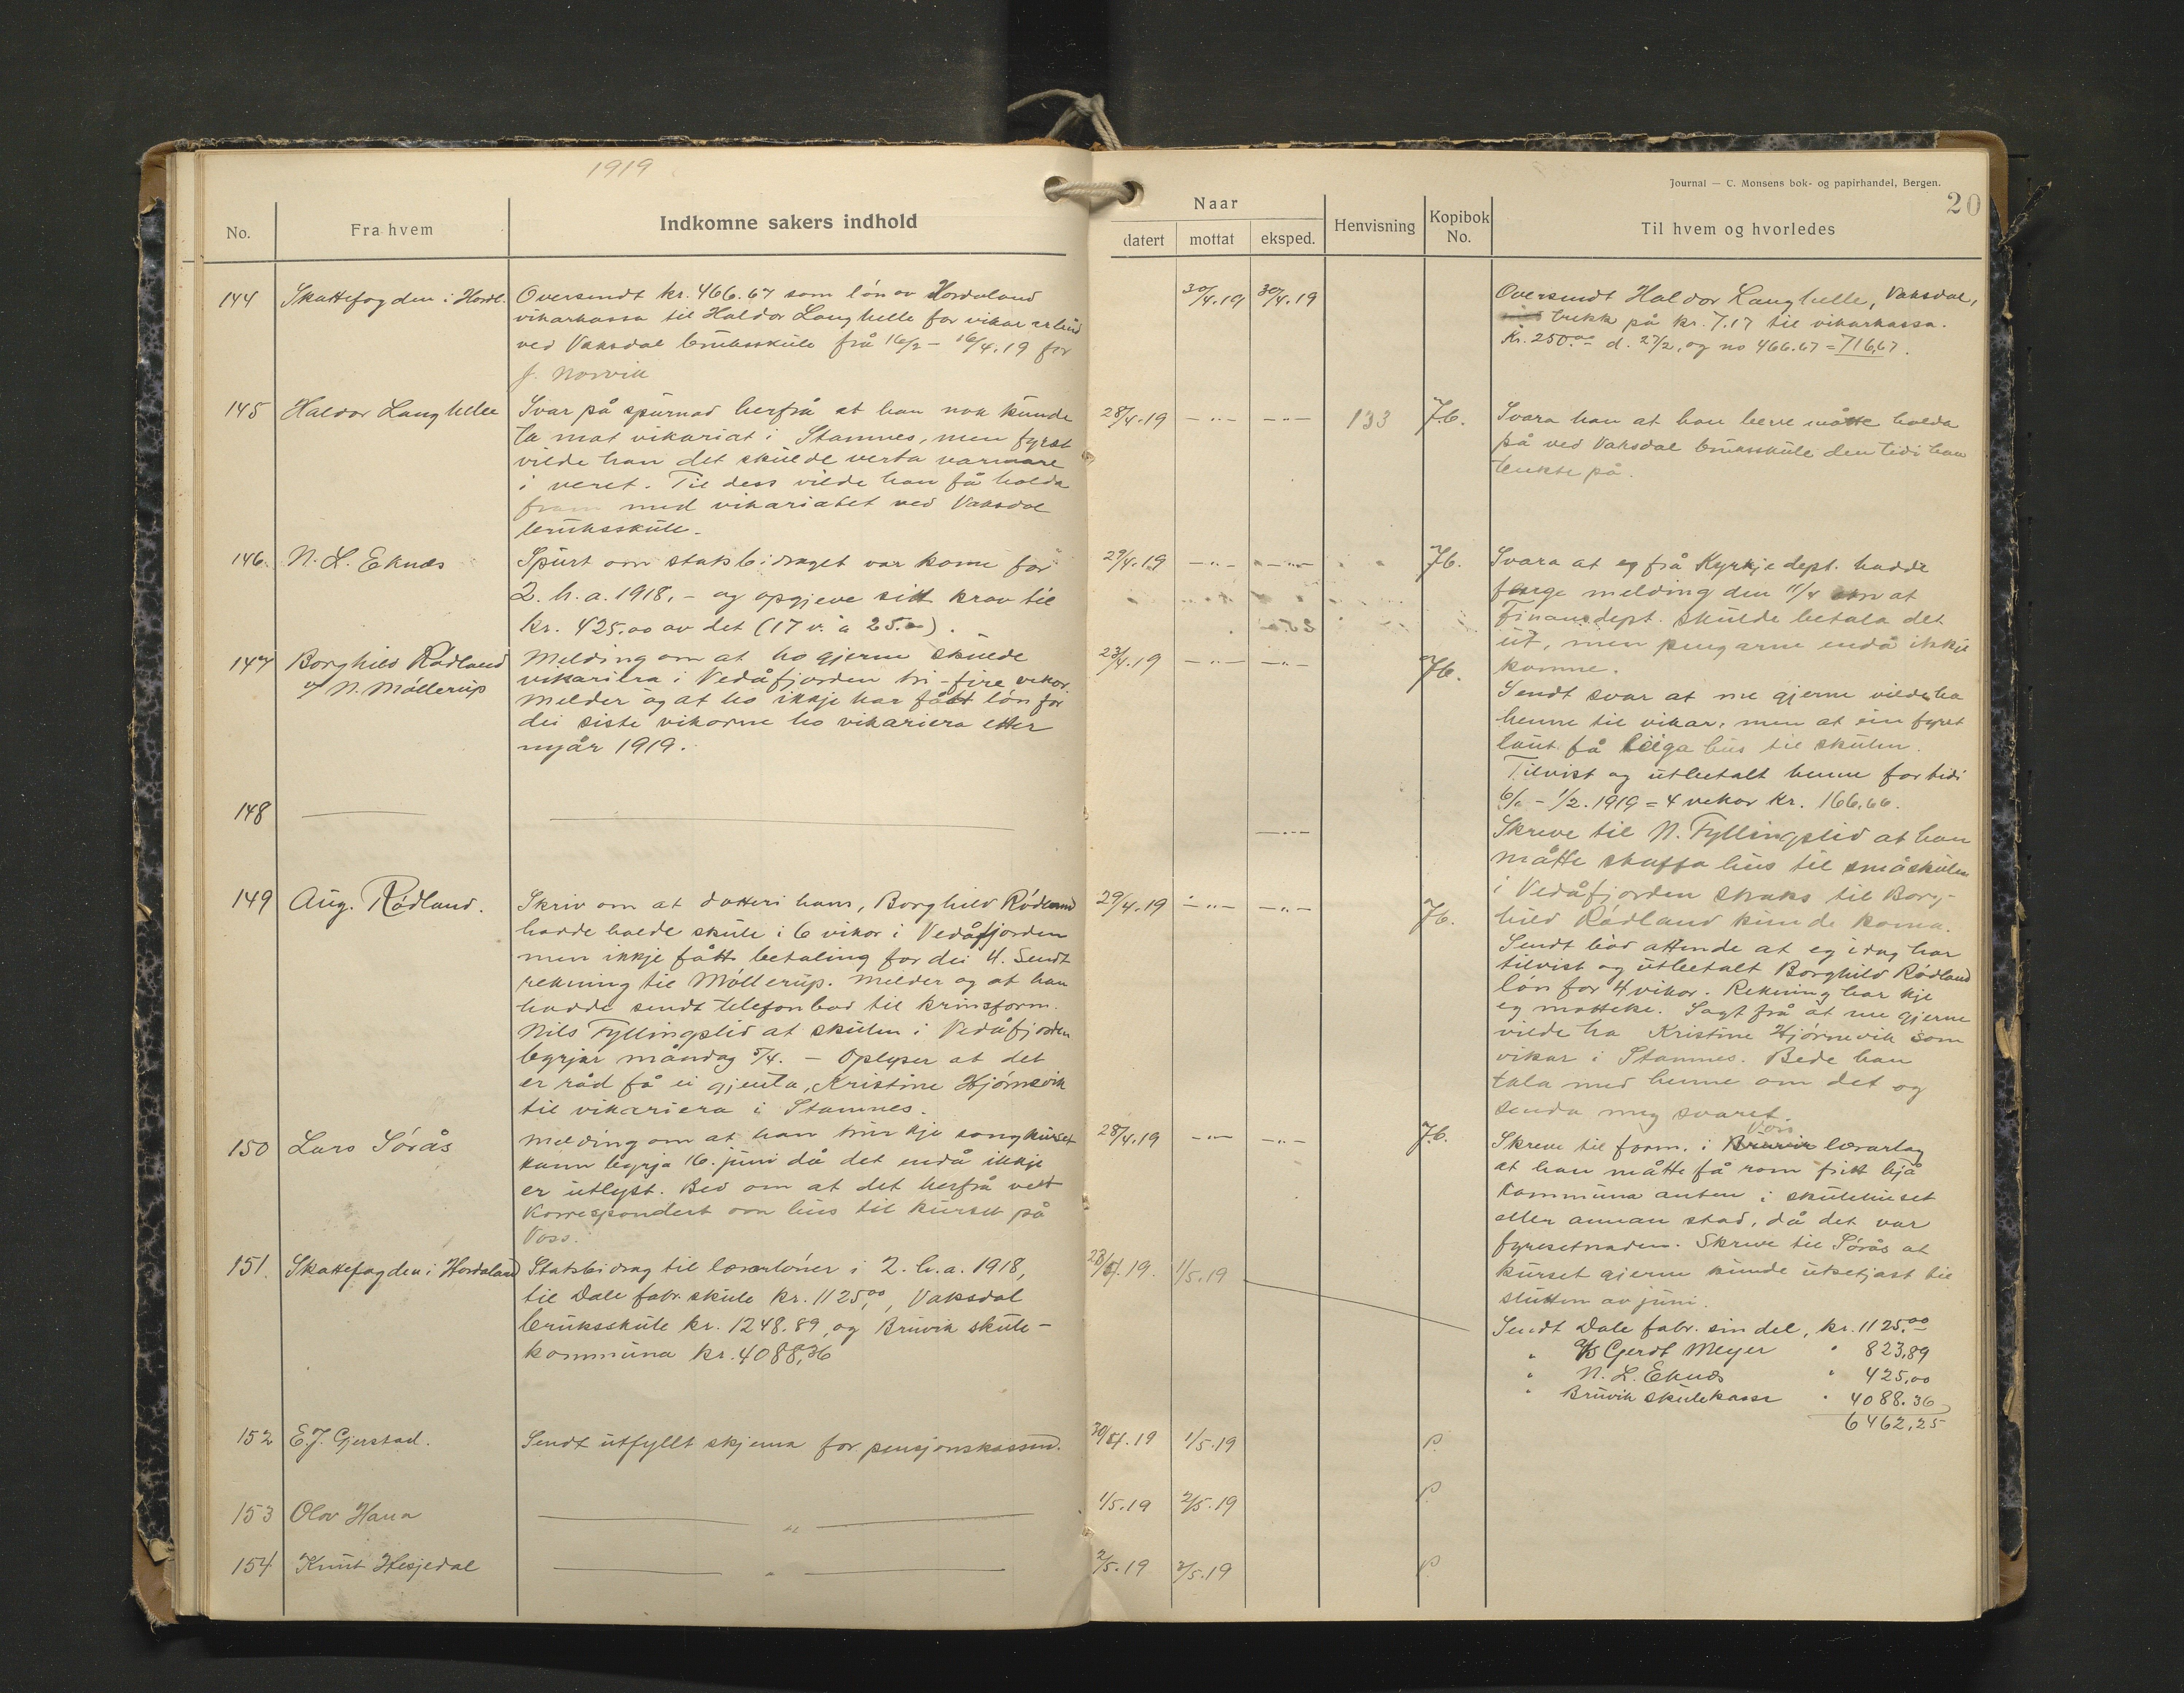 1919
Journal — C. Monsens bok- og papirhandel, Bergen.
20
No.
Fra hvem
Indkomne sakers indhold
Naar
datert
mottat
eksped.
Henvisning
Kopibok No.
Til hvem og hvorledes
144 Skattefogden i Hordl.
Oversendt kr. 466.67 som løn av Hordaland
vikarkassa til Haldor Langhelle for vikararbeid
ved Vaksdal bruksskule frå 16/2 – 16/4.19 for
J. Norvik
30/4.19 30/4.19
Oversendt Haldor Langhelle, Vaksdal,
trekk på kr. 7.17 til vikarkassa.
Kr. 250.00 d. 27/2, og no 466.67 = 716,67.
145 Haldor Langhelle
Svar på spurnad herfrå at han nok kunde
ta mot vikariat i Stamnes, men fyrst
vilde han det skulde verta varmare
i veret. Til dess vilde han få halda
fram med vikariatet ved Vaksdal
bruksskule.
28/4.19 — " — — " — 133 7b.
Svara han at han berre måtte halda
på ved Vaksdal bruksskule den tidi han
tenkte på.
146. N. L. Eknes
Spurt om statsbidraget var kome for
2. h. a. 1918, – og opgjeve sitt krav til
kr. 425.00 av det (17 v. à 25.00).
29/4.19 — " — — " — 7b.
Svara at eg frå Kyrkjedept. hadde
fenge melding den 11/4 om at
Finansdept. skulde betala det
ut, men pengarne endå ikkje
komne.
147 Borghild Rødland
v/ N. Møllerup
Melding om at ho gjerne skulde
vikariera i Vedåfjorden tri-fire vekor.
Melder og at ho ikkje har fått løn for
dei siste vikorne ho vikariera etter
nyår 1919.
23/4.19 — " — — " — 7b.
Sendt svar at me gjerne vilde ha
henne til vikar, men at ein fyrst
laut få leiga hus til skulen.
Tilvist og utbetalt henne for tidi
6/1 – 1/2. 1919 = 4 vekor kr. 166,66.
148
— " —
Skreve til N. Fyllingslid at han
måtte skaffa hus til småskulen
i Vedåfjorden straks til Borg-
hild Rødland kunde koma.
149 Aug. Rødland.
Skriv om at dotteri hans, Borghild Rødland
hadde halde skule i 6 vikor i Vedåfjorden
men ikkje fått betaling for dei 4. Sendt
rekning til Møllerup. Melder og at han
hadde sendt telefonbod til krinsform.
Nils Fyllingslid at skulen i Vedåfjorden
byrjar måndag 5/4. — Oplyser at det
er råd få ei gjenta, Kristine Hjørnevik
til vikariera i Stamnes.
29/4.19 — " — — " — 7b.
Sendt bod attende at eg idag har
tilvist og utbetalt Borghild Rødland
løn for 4 vikor. Rekning har kje
eg motteke. Sagt frå at me gjerne
vilde ha Kristine Hjørnevik som
vikar i Stamnes. Bede han
tala med henne om det og
senda meg svaret.
150 Lars Sørås
Melding om at han trur kje songkurset
kann byrja 16. juni då det endå ikkje
er utlyst. Bed om at det herfrå vert
korrespondert om hus til kurset på
Voss.
28/4.19 — " — — " — 7b.
Skreve til form. i Bruvik Voss lærarlag
at han måtte få rom fritt hjå
kommuna anten i skulehuset
eller annan stad, då det var
fyresetnaden. Skreve til Sørås at
kurset gjerne kunde utsetjast til
slutten av juni.
151. Skattefogden i Hordaland
Statsbidrag til lærarløner i 2. h. a. 1918,
til Dale fabr. skule kr. 1125,00, Vaksdal
bruksskule kr. 1248.89, og Bruvik skule-
kommuna kr. 4088,36
28/4.19. 1/5.19
Sendt Dale fabr. sin del, kr. 1125.00
" A/S Gerdt Meyer " 823,89
" N. L. Eknes " 425,00
" Bruvik skulekasse " 4088.36
6462,25
152 E. J. Gjerstad.
Sendt utfyllt skjema for pensjonskassen.
30/4.19 1/5.19 P.
153 Olav Hana
— " —
1/5.19 2/5.19 P.
154 Knut Hesjedal
— " —
2/5.19 2/5.19 P.